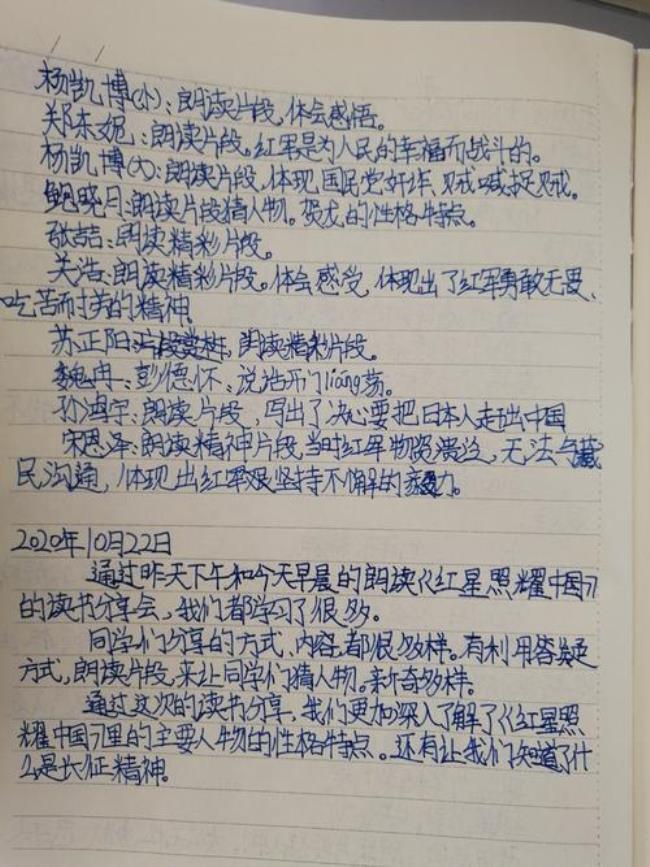 杨凯博(小):朗读片段,体会感悟。
郑东妮:朗读片段。红军是为人民的幸福而战斗的。
杨凯博(大):朗读片段,体现国民党奸诈,贼喊捉贼。
鲍晓月:朗读片段猜人物。贺龙的性格特点。
张喆:朗读精彩片段。
关浩:朗读精彩片段。体会感受,体现出了红军勇敢无畏、
吃苦而讨劳的精神。
苏正阳:片段赏析,朗读精彩片段。
魏冉:彭德怀:说话开门liáng荡。
孙鸿宇:朗读片段,写出了决心要把日本人走出中国
宋恩泽:朗读精神片段,当时红军物资溃泛,无法与藏
民沟通,体现出红军艰坚持不懈的毅力。
2020年10月22日
通过昨天下午和今天早晨的朗读《红星照耀中国》
的读书分享会,我们都学习了很多。
同学们分享的方式、内容都很多样。有利用答疑
方式,朗读片段,来让同学们猜人物。新奇多样。
通过这次的读书分享,我们更加深入了解了《红星照
耀中国》里的主要人物的性格特点。还有让我们知道了什
么是长征精神。